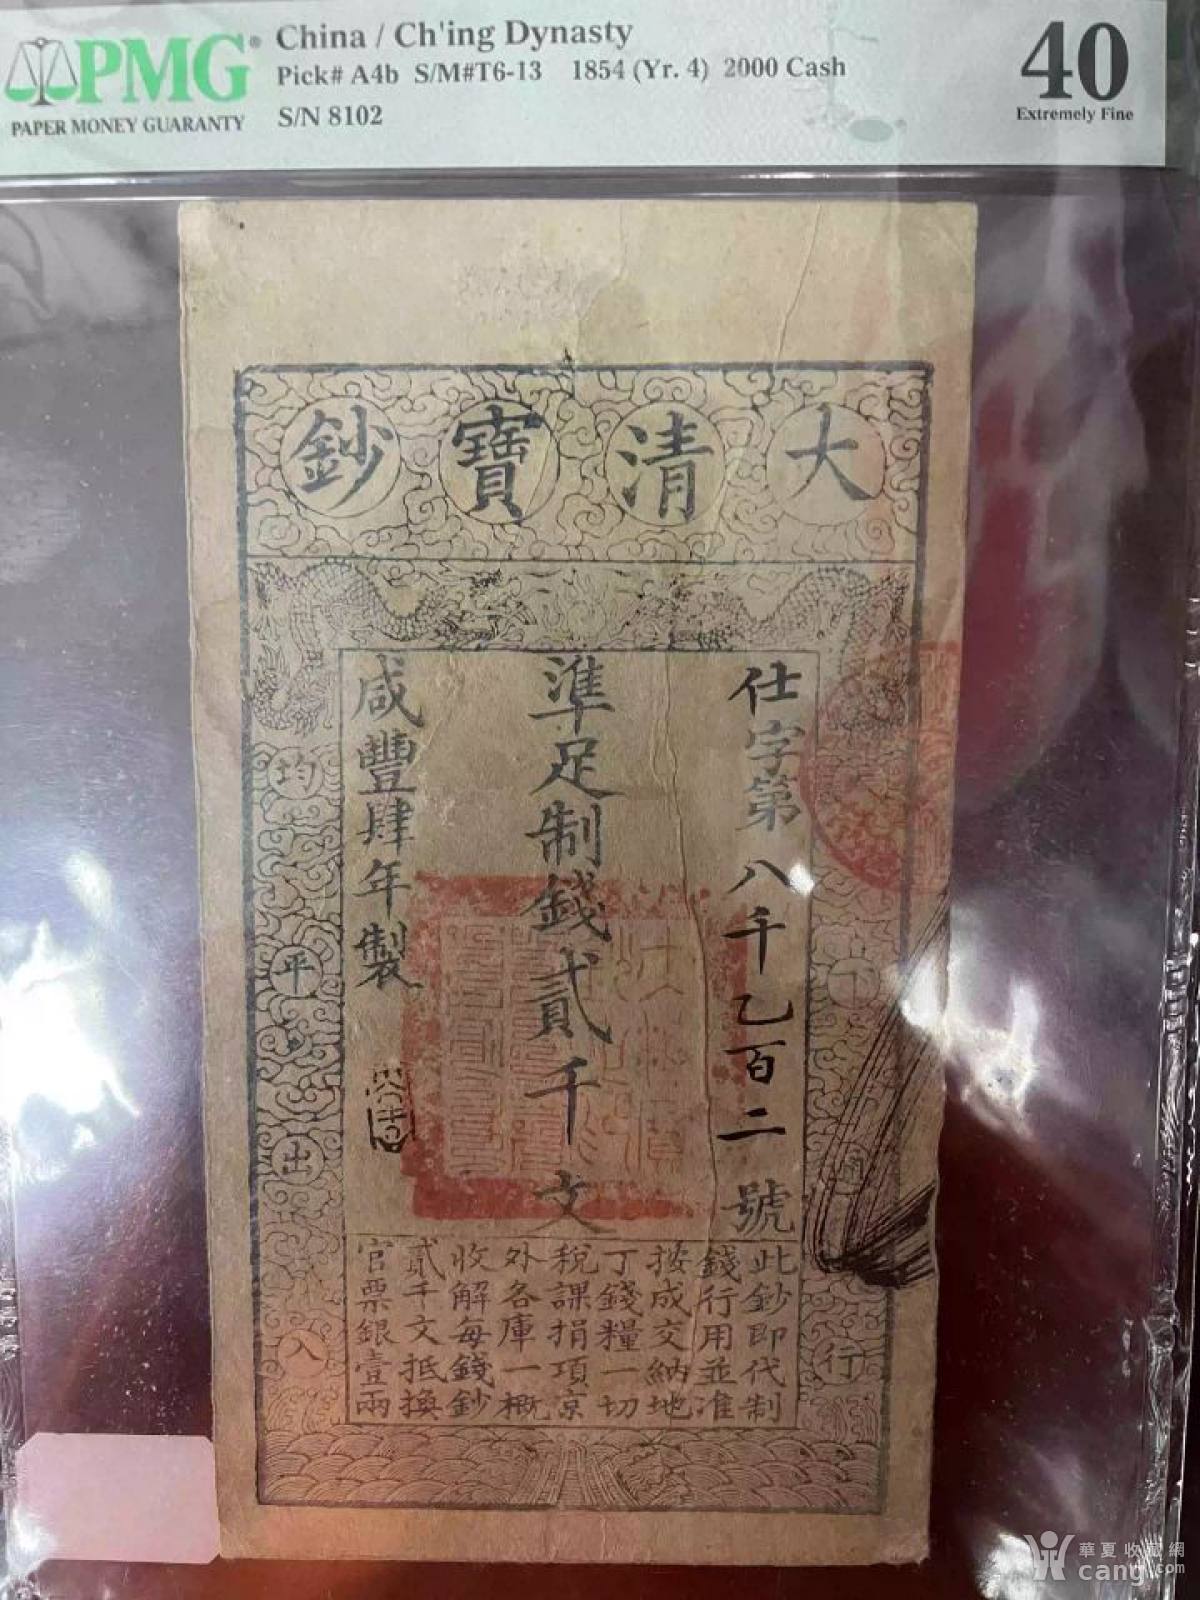 PMG
PAPER MONEY GUARANTY
China / Ch'ing Dynasty
Pick# A4b S/M#T6-13 1854 (Yr. 4) 2000 Cash
S/N 8102
40
Extremely Fine
大清寶鈔
仕字第八千乙百二號
準足制錢貳千文
咸豐肆年製
此鈔即代制
錢行用並准
按成交納地
丁錢糧一切
稅課捐項京
外各庫一概
收解每錢鈔
貳千文抵換
官票銀壹兩
下通行
均平出入
華夏收藏網
cang.com